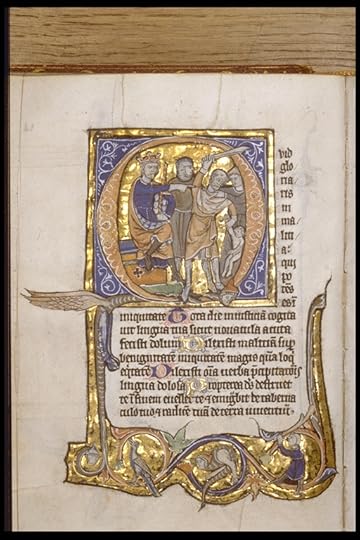 Q uid
glo
ria
ris
in
ma
lici
a:
qui
po
tēs
es ī
iniquitate Tota die iniusticiā cogita
uit lingua tua sicut nouacula acuta
fecisti dolum Dilexisti maliciam sup
benignitatem iniquitatem magis quā loqi
eqtatem Dilexisti oīa uerba p̄cipitatōis
lingua dolosa Propterea ds destruet
te ī finem euellet te & emigbit te de taberna
culo tuo & radicē tuā de terra uiuentiū